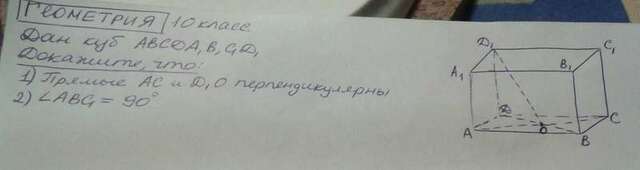 ГЕОМЕТРИЯ 10 класс
Дан куб ABCDA₁B₁C₁D₁
Докажите, что:
1) Прямые AC и D₁O перпендикулярны
2) ∠ABC₁ = 90°
D₁
C₁
A₁
B₁
D
C
A
O
B